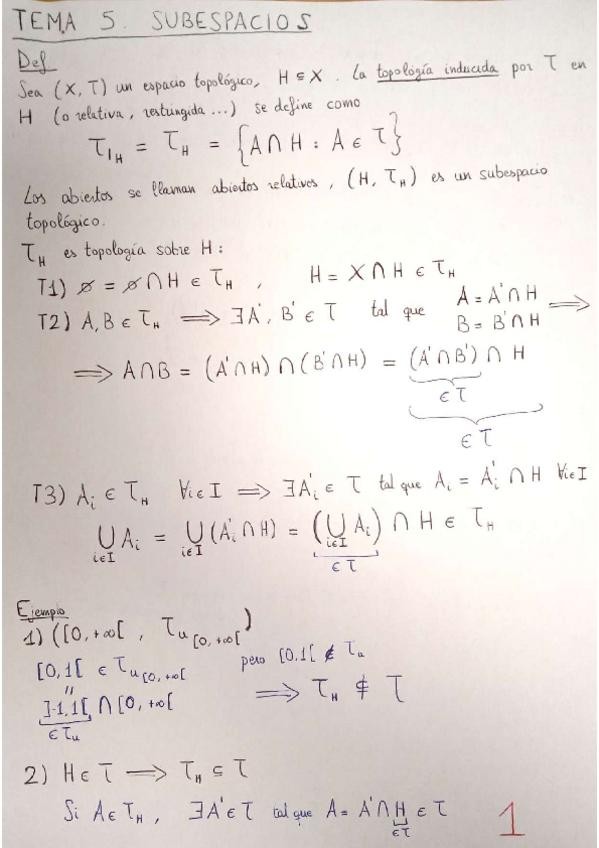 TEMA 5. SUBESPACIOS
Def
Sea (X, T) un espacio topológico, H ⊆ X. La topología inducida por T en
H (o relativa, restringida ...) se define como
T|_H = T_H = {A ∩ H : A ∈ T}
Los abiertos se llaman abiertos relativos, (H, T_H) es un subespacio
topológico.
T_H es topología sobre H:
T1) ∅ = ∅ ∩ H ∈ T_H , H = X ∩ H ∈ T_H
T2) A, B ∈ T_H ⟹ ∃A', B' ∈ T tal que A = A' ∩ H B = B' ∩ H ⟹
⟹ A ∩ B = (A' ∩ H) ∩ (B' ∩ H) = (A' ∩ B') ∩ H
∈ T
∈ T
T3) A_i ∈ T_H ∀i∈I ⟹ ∃A'_i ∈ T tal que A_i = A'_i ∩ H ∀i∈I
⋃_{i∈I} A_i = ⋃_{i∈I} (A'_i ∩ H) = (⋃_{i∈I} A_i) ∩ H ∈ T_H
∈ T
Ejemplo
1) ([0, +∞[ , T_{u [0, +∞[})
[0,1[ ∈ T_{u [0, +∞[} pero [0,1[ ∉ T_u
"
]-1,1[ ∩ [0, +∞[ ⟹ T_H ⊄ T
∈ T_u
2) H ∈ T ⟹ T_H ⊆ T
Si A ∈ T_H , ∃A' ∈ T tal que A = A' ∩ H ∈ T
∈ T
1